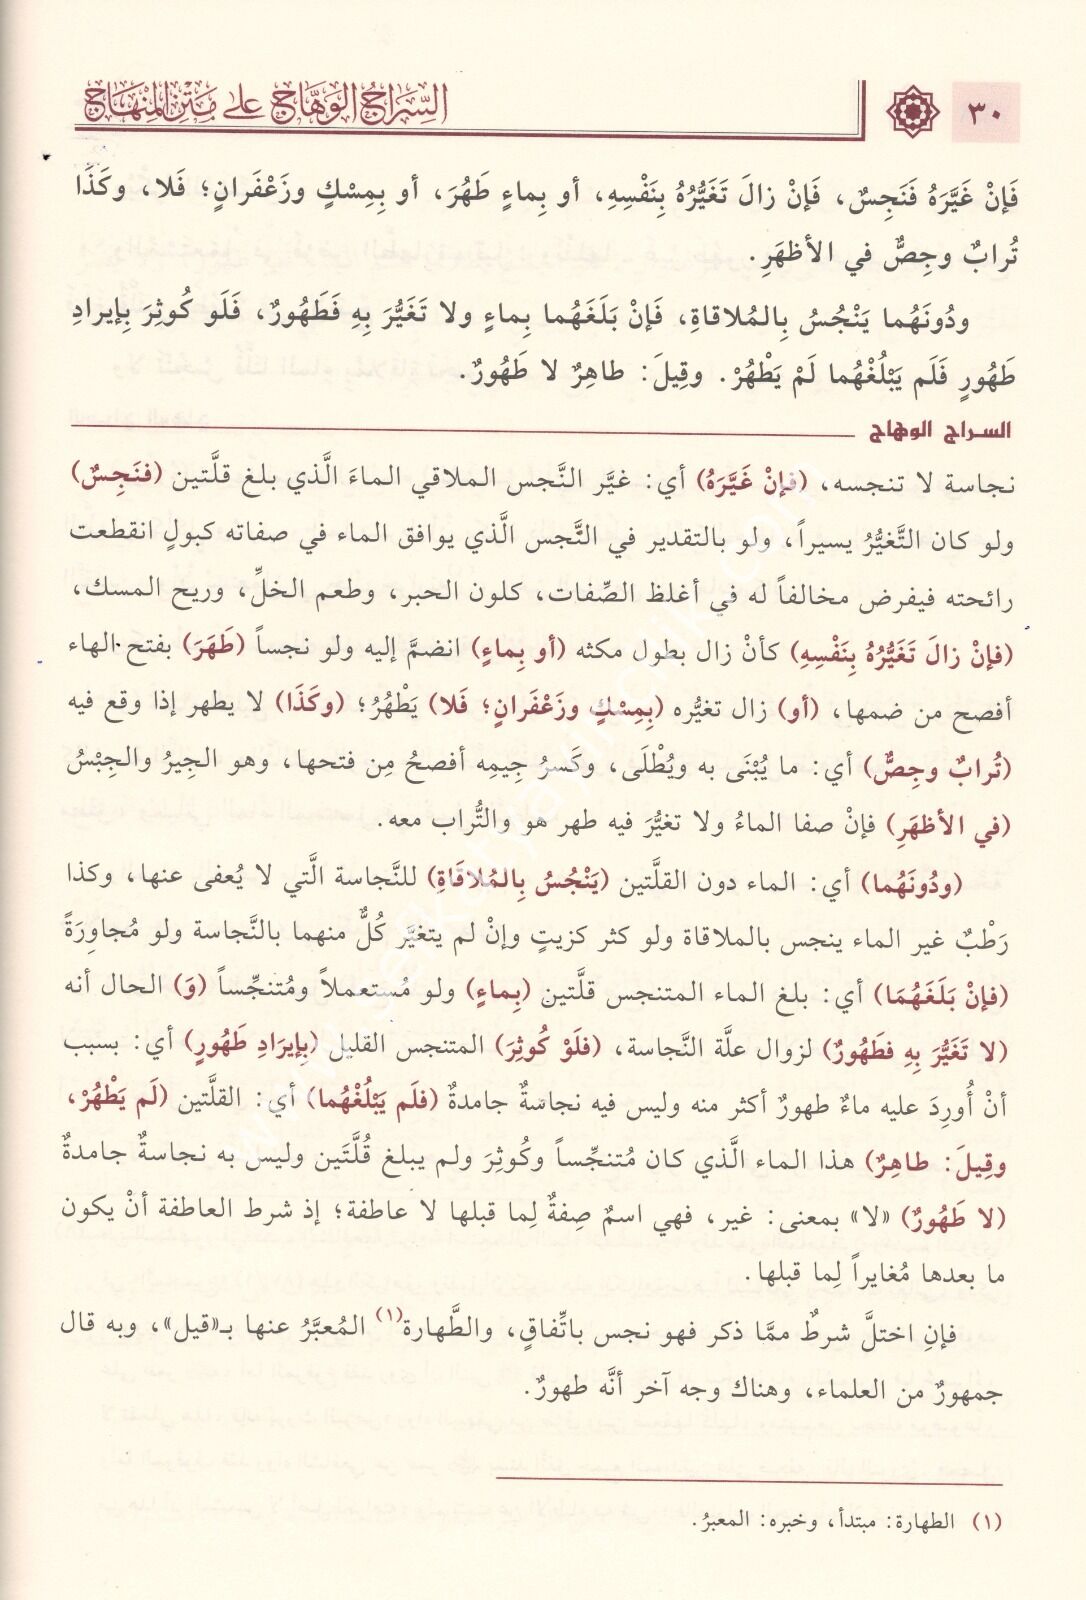 ٣٠
السِّرَاجُ الوَهَّاج على مَتْنِ المِنْهَاج
فَإنْ غَيَّرَهُ فَنَجِسٌ، فَإنْ زالَ تَغَيُّرُهُ بِنَفْسِهِ، أو بِماءٍ طَهُرَ، أو بِمِسْكٍ وزَعْفَرانٍ؛ فَلا، وكَذَا
تُرابٌ وجِصٌّ في الأظهَرِ.
ودُونَهُما يَنْجُسُ بِالمُلاقاةِ، فَإنْ بَلَغَهُما بِماءٍ ولا تَغَيُّرَ بِهِ فَطَهُورٌ، فَلَو كُوثِرَ بِإيرادِ
طَهُورٍ فَلَم يَبْلُغْهُما لَمْ يَطْهُرْ. وقِيلَ: طاهِرٌ لا طَهُورٌ.
السراج الوهاج
نجاسة لا تنجسه، (فإنْ غَيَّرَهُ) أي: غيَّر النَّجس الملاقي الماءَ الَّذي بلغ قلَّتين (فنَجِسٌ)
ولو كان التَّغيُّرُ يسيراً، ولو بالتقدير في النَّجس الَّذي يوافق الماء في صفاته كبولٍ انقطعت
رائحته فيفرض مخالفاً له في أغلظ الصِّفات، كلون الحبر، وطعم الخلِّ، وريح المسك،
(فإنْ زالَ تَغَيُّرُهُ بِنَفْسِهِ) كأنْ زال بطول مكثه (أو بِماءٍ) انضمَّ إليه ولو نجساً (طَهَرَ) بفتح الهاء
أفصح من ضمها، (أو) زال تغيُّره (بِمِسْكٍ وزَعْفَرانٍ؛ فَلا) يَطْهُرُ؛ (وكَذَا) لا يطهر إذا وقع فيه
(تُرابٌ وجِصٌّ) أي: ما يُبْنَى به ويُطْلَى، وكَسرُ جِيمِه أفصحُ مِن فتحها، وهو الجِيرُ والجِبْسُ
(في الأظهَرِ) فإنْ صفا الماءُ ولا تغيُّرَ فيه طهر هو والتُّراب معه.
(ودُونَهُما) أي: الماء دون القلَّتين (يَنْجُسُ بِالمُلاقَاةِ) للنَّجاسة الَّتي لا يُعفى عنها، وكذا
رَطْبٌ غير الماء ينجس بالملاقاة ولو كثر كزيتٍ وإنْ لم يتغيَّر كُلٌّ منهما بالنَّجاسة ولو مُجاوِرَةً
(فإنْ بَلَغَهُمَا) أي: بلغ الماء المتنجس قلَّتين (بِماءٍ) ولو مُستعملاً ومُتنجِّساً (وَ) الحال أنه
(لا تَغَيُّرَ بِهِ فطَهُورٌ) لزوال علَّة النَّجاسة، (فلَوْ كُوثِرَ) المتنجس القليل (بِإيرَادِ طَهُورٍ) أي: بسبب
أنْ أُورِدَ عليه ماءٌ طهورٌ أكثر منه وليس فيه نجاسةٌ جامدةٌ (فلَم يَبْلُغْهُما) أي: القلَّتين (لَم يَطْهُرْ،
وقِيلَ: طاهِرٌ) هذا الماء الَّذي كان مُتنجِّساً وكُوثِرَ ولم يبلغ قُلَّتَين وليس به نجاسةٌ جامدةٌ
(لا طَهُورٌ) «لا» بمعنى: غير، فهي اسمٌ صِفةٌ لِما قبلها لا عاطفة؛ إذ شرط العاطفة أنْ يكون
ما بعدها مُغايراً لِما قبلها.
فإنِ اختلَّ شرطٌ ممَّا ذكر فهو نجس باتِّفاقٍ، والطَّهارة(١) المُعبَّرُ عنها بـ«قيل»، وبه قال
جمهورٌ من العلماء، وهناك وجه آخر أنَّه طهورٌ.
(١) الطهارة: مبتدأ، وخبره: المعبرُ.